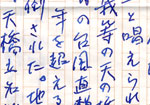 と唱えられ
我等の天の橋
の台風直撃
年を超える
倒された。地
天橋立和